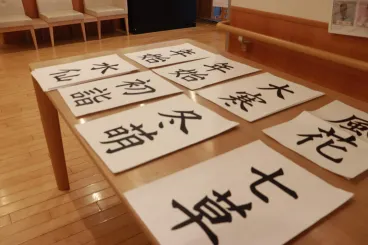 水仙
年始
初詣
年始
冬萌
大寒
七草
風花